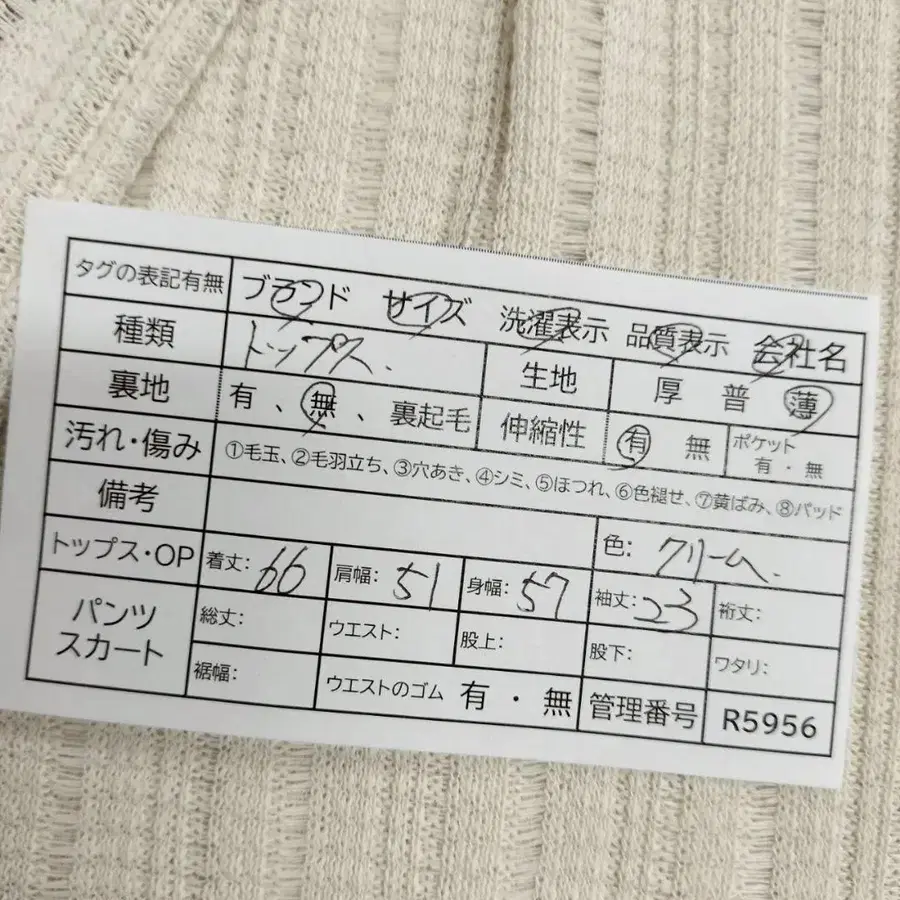 タグの表記有無 ブランド サイズ 洗濯表示 品質表示 会社名
種類 トップス. 生地 厚 普 薄
裏地 有 、 無 、 裏起毛 伸縮性 有 無 ポケット 有 ・ 無
汚れ・傷み ①毛玉、②毛羽立ち、③穴あき、④シミ、⑤ほつれ、⑥色褪せ、⑦黄ばみ、⑧パッド
備考 色: クリーム.
トップス・OP 着丈: 66 肩幅: 51 身幅: 57 袖丈: 23 裄丈:
パンツ スカート 総丈: ウエスト: 股上: 股下: ワタリ:
裾幅: ウエストのゴム 有 ・ 無 管理番号 R5956